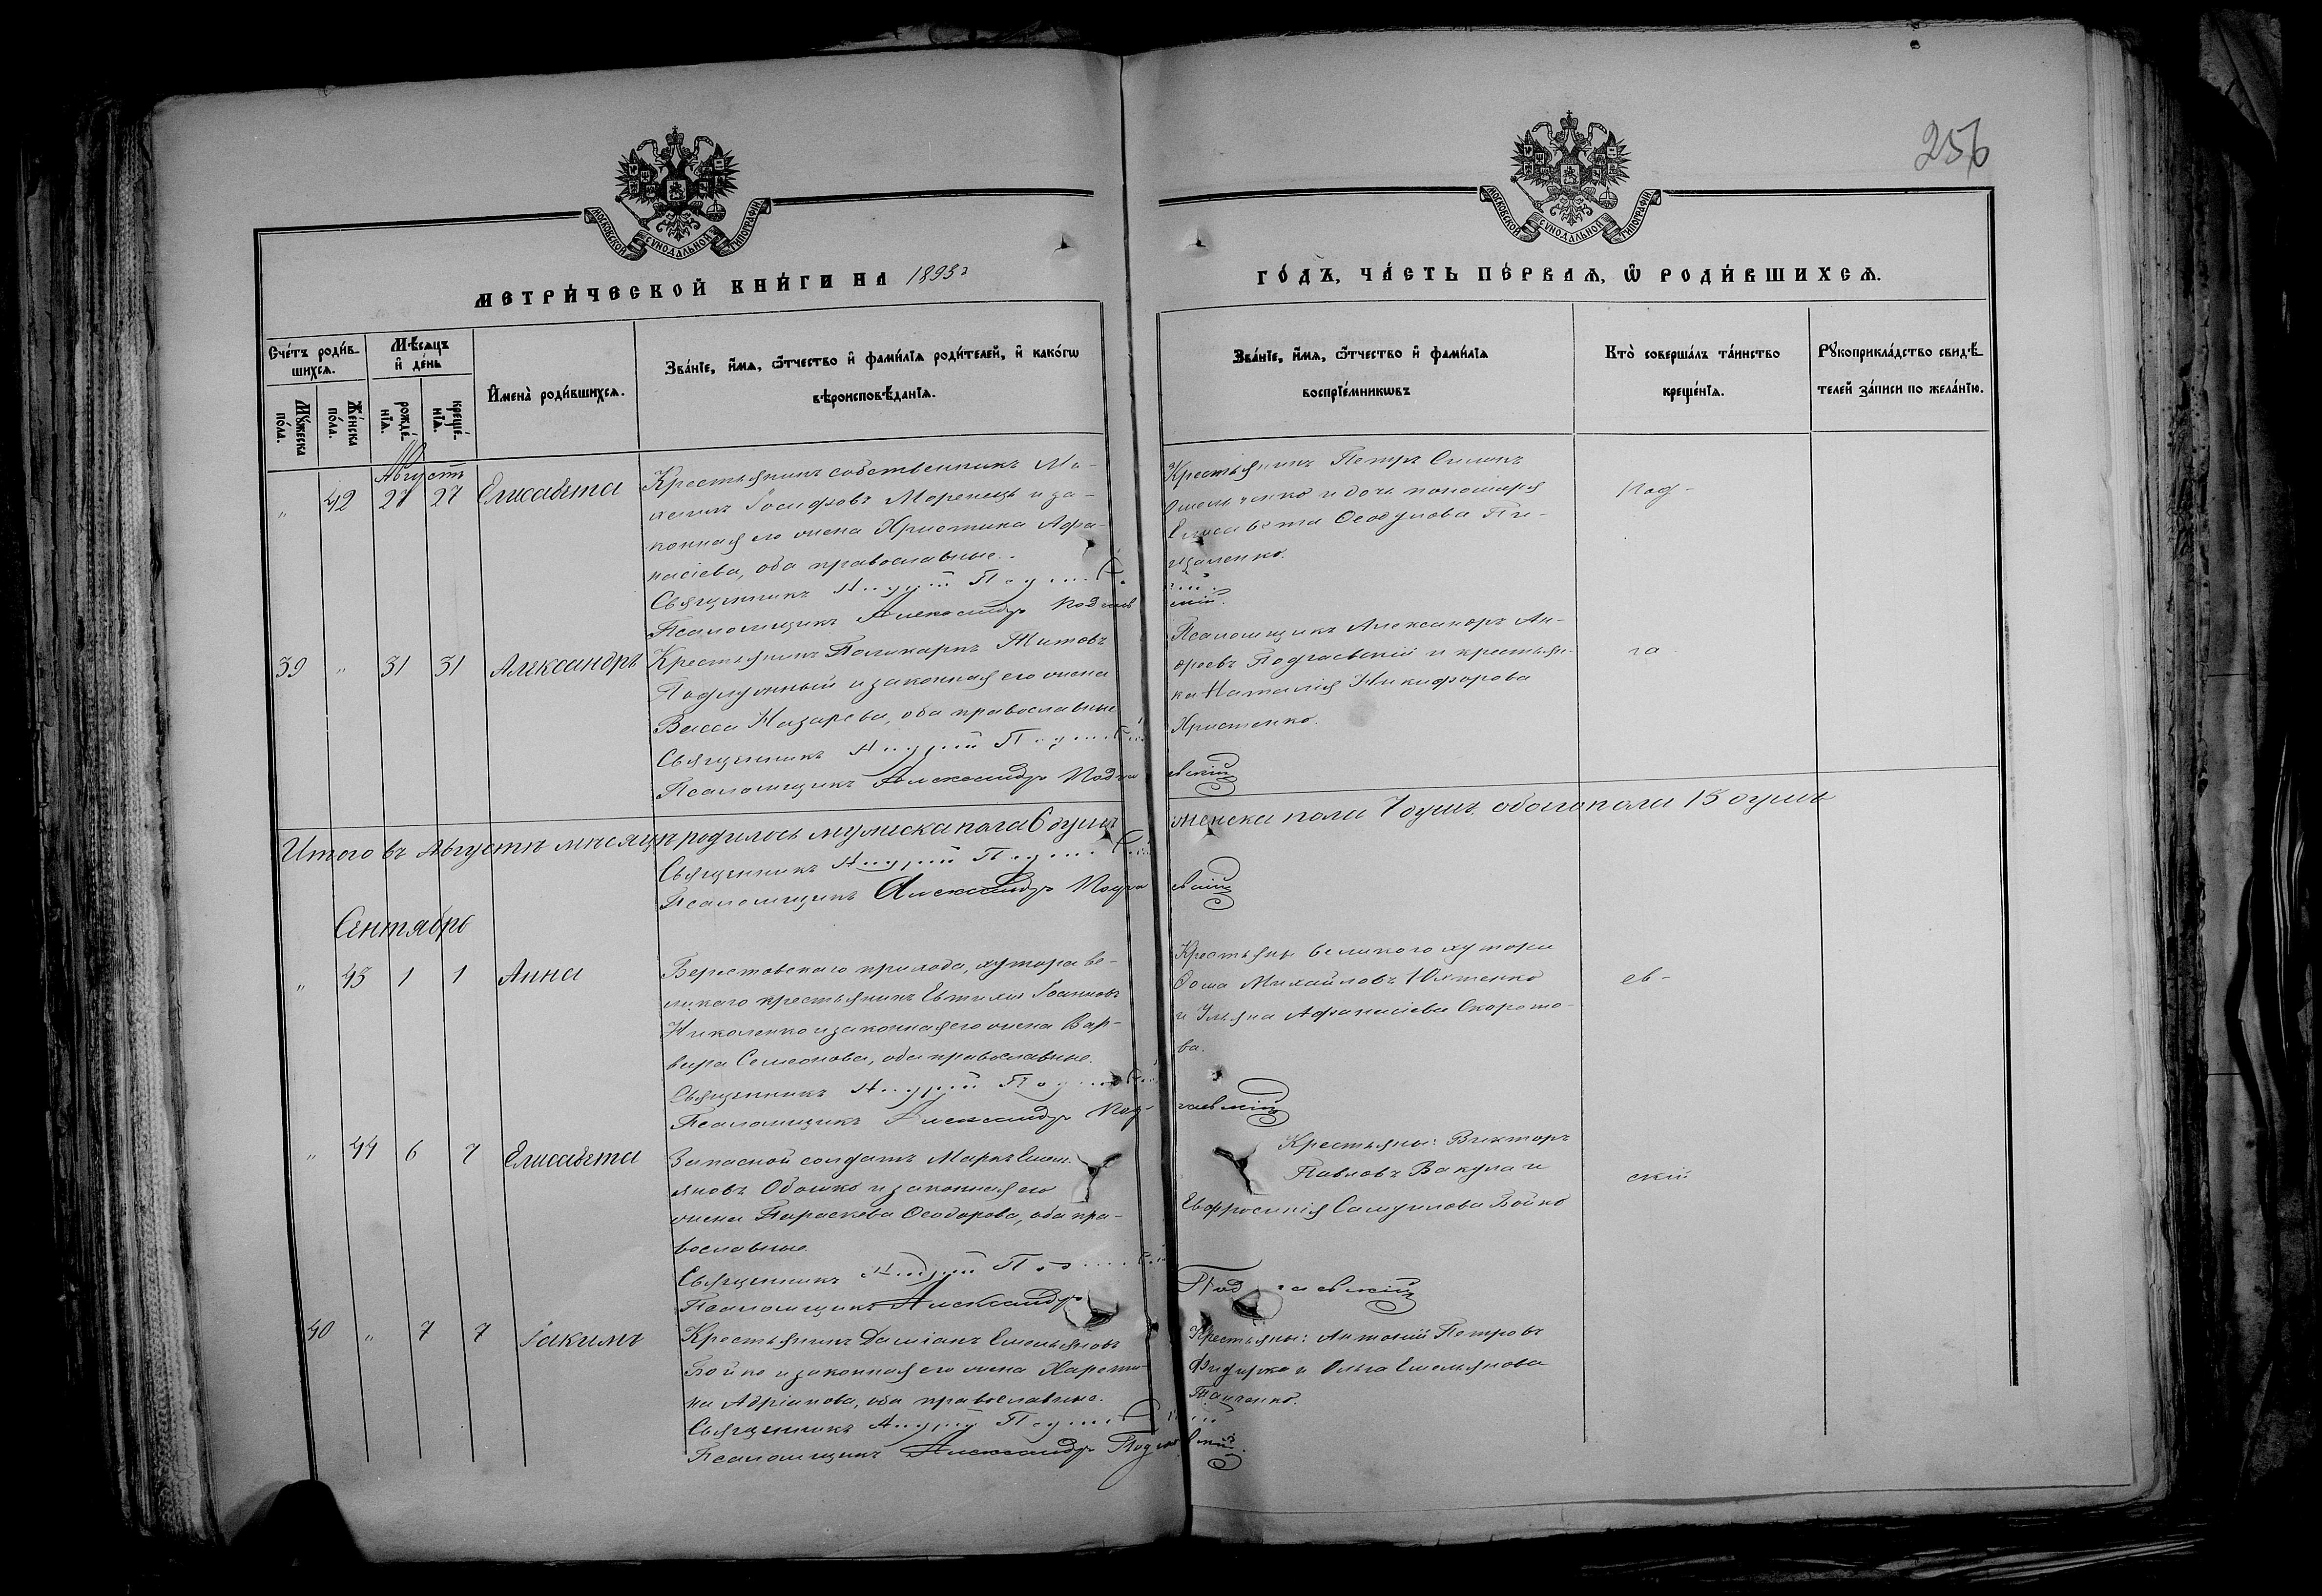 256
МОСКОВСКОЙ СУНОДАЛЬНОЙ ТИПОГРАФІИ
МОСКОВСКОЙ СУНОДАЛЬНОЙ ТИПОГРАФІИ
МЕТРИ́ЧЕСКОЙ КНИ́ГИ НА 1893 г
ГО́ДЪ, ЧА́СТЬ ПЕ́РВАЯ, Ѡ РОДИ́ВШИХСЯ.
Сче́тъ роди́в-
шихся.
Мѣ́сяцъ
и де́нь
Му́жеска по́ла.
Же́нска по́ла.
рожде́-
нія.
креще́-
нія.
Имена̀ роди́вшихся.
Зва́ніе, и́мя, ѻ́тчество и фами́лія роди́телей, и како́гѡ
вѣроисповѣ́данія.
Зва́ніе, и́мя, ѻ́тчество и фами́лія
воспріе́мникѡвъ
Кто̀ соверша́лъ та́инство
креще́нія.
Рꙋкоприкла́дство свидѣ́-
телей за́писи по жела́нію.
Августъ
" 42 27 27 Елисавета
Крестьянинъ собственникъ Ми-
хаилъ Іосифовъ Моренецъ и за-
конная его жена Христина Афа-
насіева, оба православные.
Священникъ
Псаломщикъ Александръ
Крестьянинъ Петръ
Омельченко и дочь пономаря
Елисавета Ѳеодулова Пи-
щаленко.
Под-
39 " 31 31 Александръ
Крестьянинъ Поликарпъ Титовъ
и законная его жена
Васса Назарева, оба православные
Священникъ
Псаломщикъ Александръ Подгаевскій
Псаломщикъ Александръ Ан-
дреевъ Подгаевскій и крестьян-
ка Наталія Никифорова
Христенко.
га
Итого въ Августѣ мѣсяцѣ родилось мужеска пола 6 душъ женска пола 7 душъ, обоего пола 13 душъ
Священникъ
Псаломщикъ Александръ Подгаевскій
Сентябрь
" 43 1 1 Анна
Берестовскаго прихода, хутора Ве-
ликаго крестьянинъ Евтихій Іоанновъ
Николенко и законная его жена Вар-
вара Семеонова, оба православные.
Священникъ
Псаломщикъ Александръ Подгаевскій
Крестьяне Великого хутора
Ѳома Михайловъ Юхтенко
и Ульяна Афанасіева Скорохо-
ва.
ев-
" 44 6 7 Елисавета
Запасной солдатъ Марко Емел-
яновъ и законная его
жена Параскева Ѳеодорова, оба пра-
вославные.
Священникъ
Псаломщикъ Александръ Подгаевскій
Крестьяны: Викторъ
Павловъ Вакула и
Евфросинія Самуилова Бойко
скій
40 " 7 7 Іакимъ
Крестьянинъ Даміанъ Емельяновъ
Бойко и законная его жена Харети-
на Адріанова, оба православные.
Священникъ
Псаломщикъ Александръ Подгаевскій
Крестьяны: Антоній Петровъ
и Ольга Емельянова